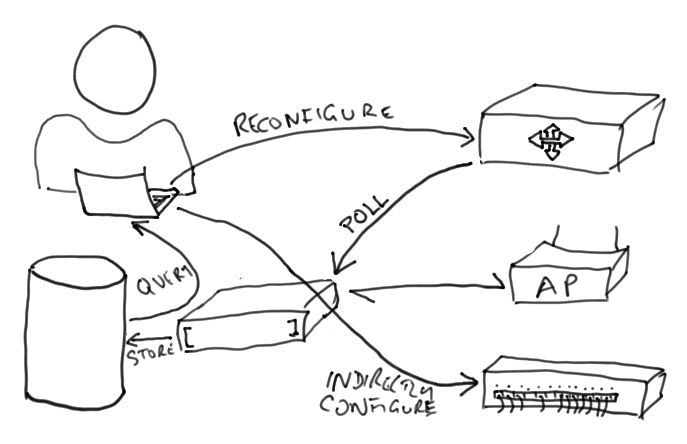 RECONFIGURE
POLL
QUERY
AP
STORE
INDIRECTLY
CONFIGURE